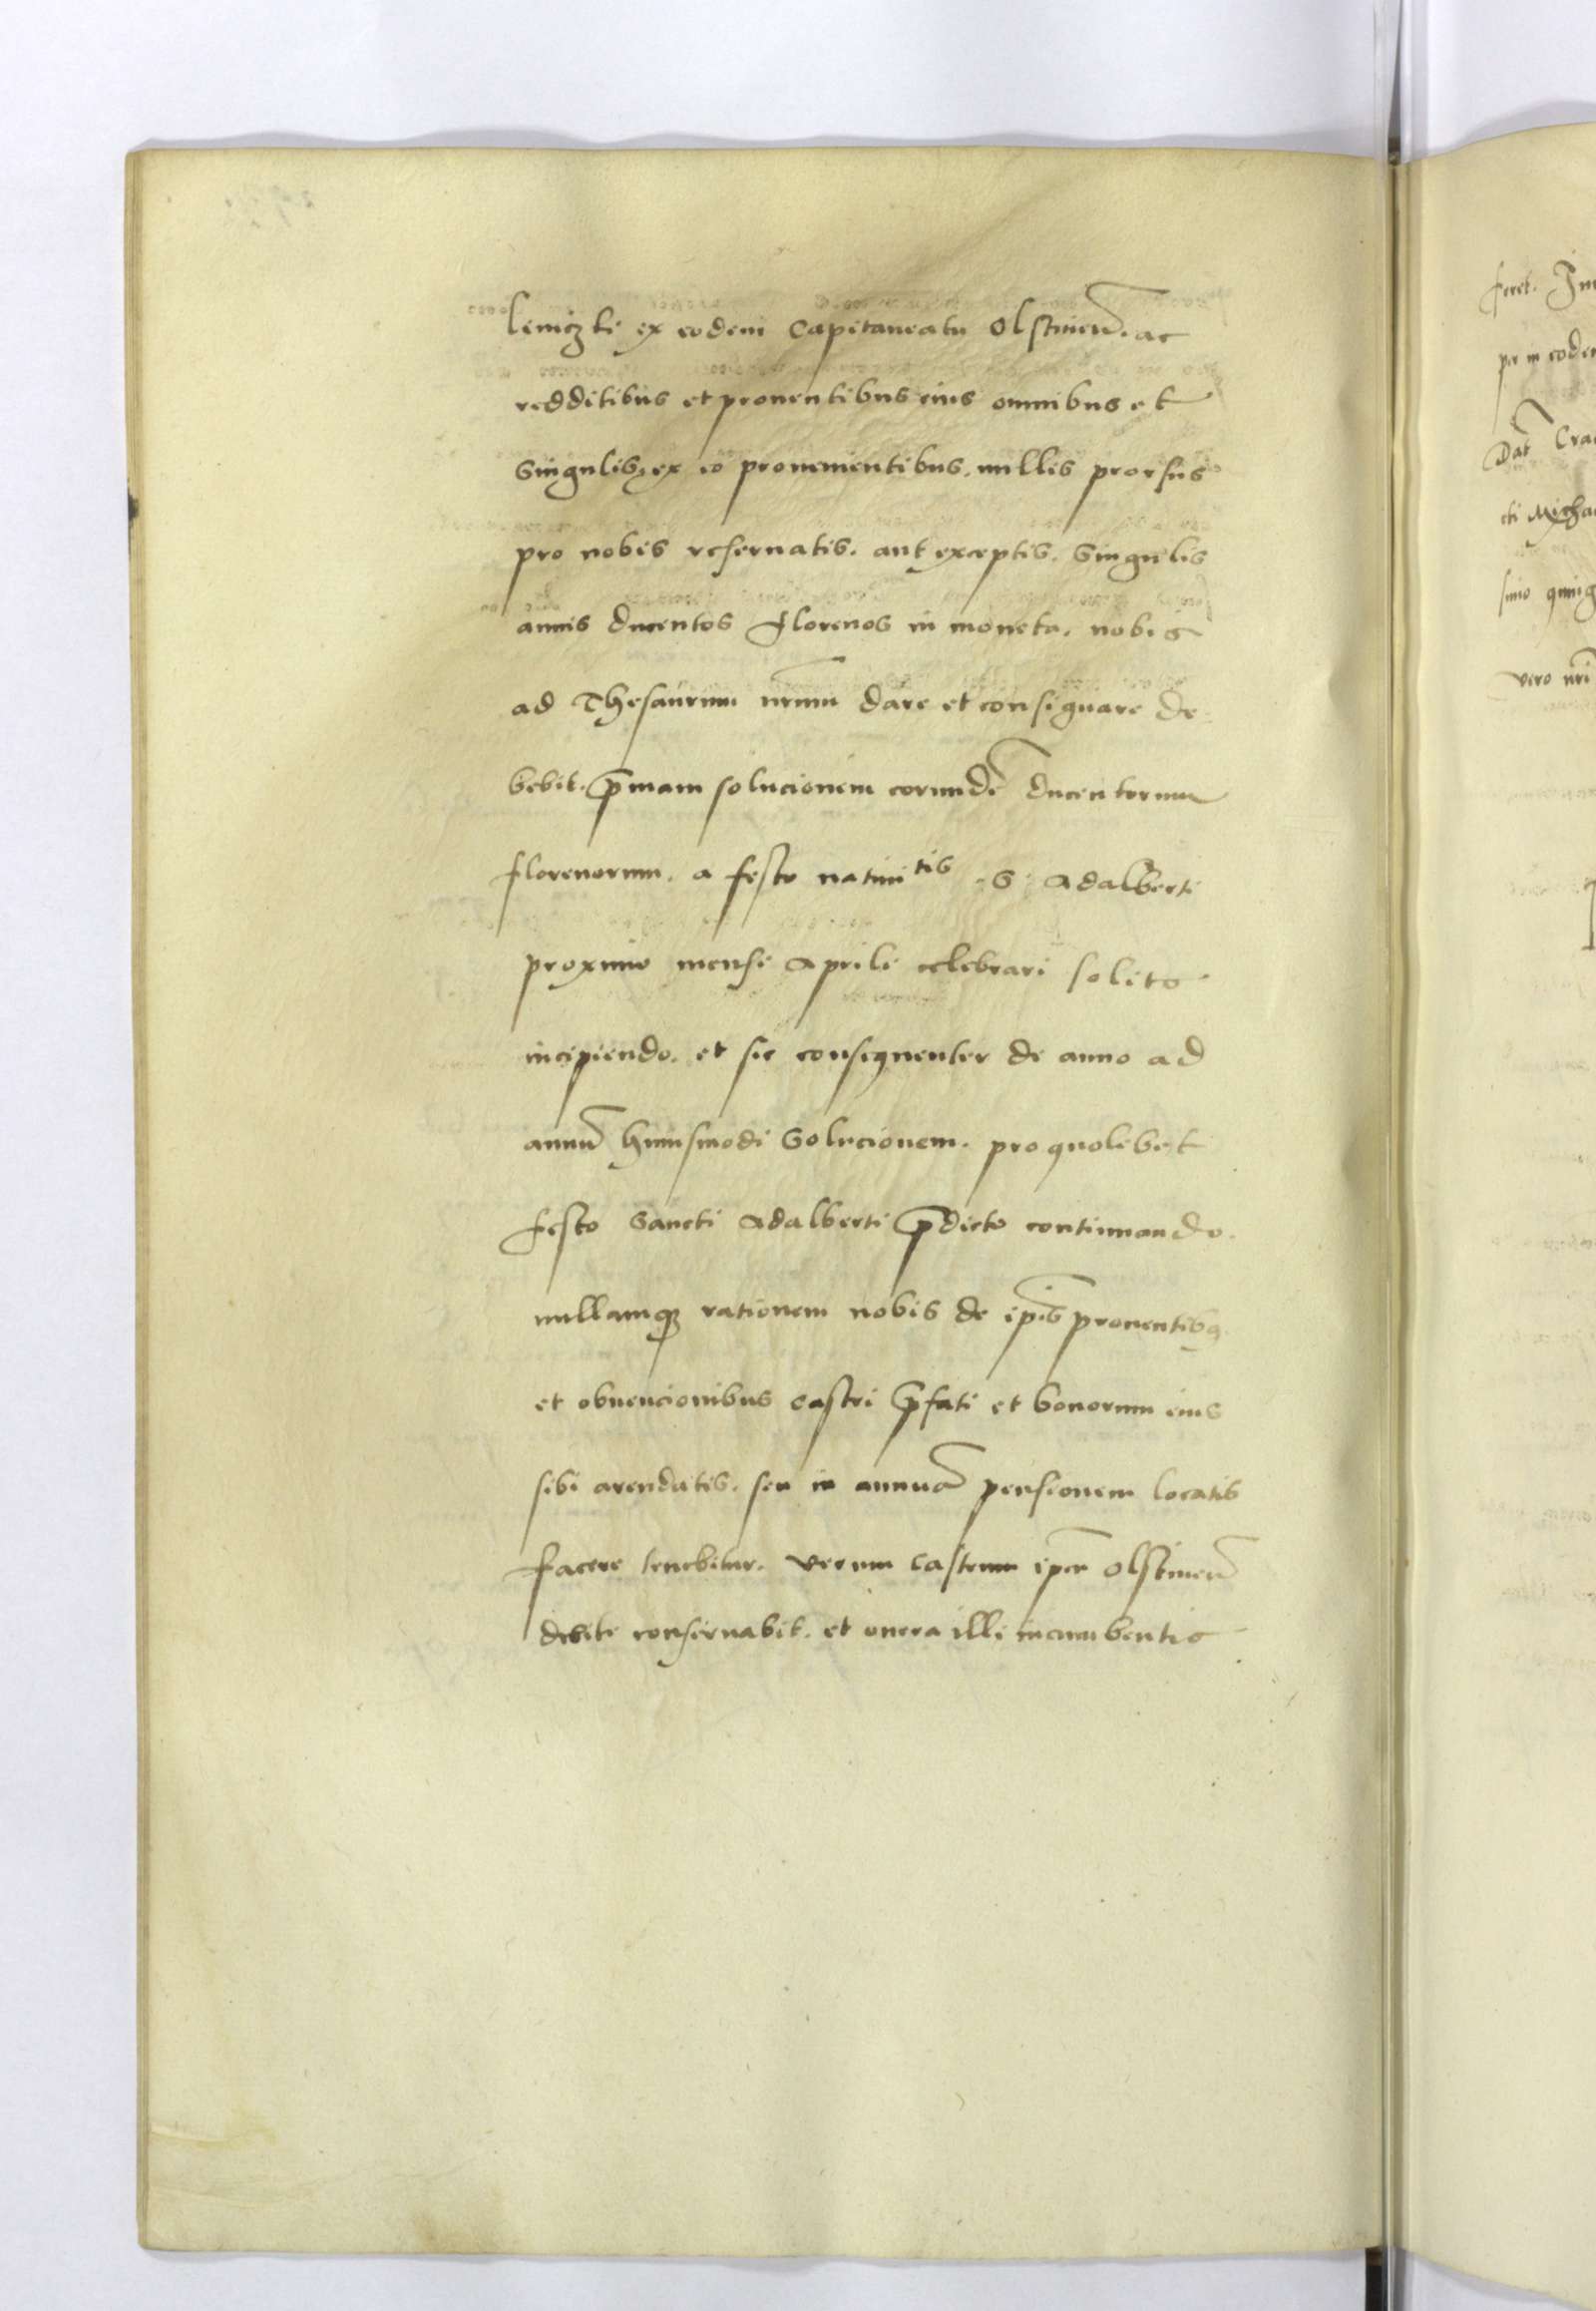 leniczki ex eodem Capitaneatu Olstinen̄. ac
redditibus et prouentibus eius omnibus et
singulis, ex eo prouenientibus. nullis prorsus
pro nobis reseruatis. aut exceptis. Singulis
annis ducentos florenos in moneta. nobis
ad Thesaurum nr̄um dare et consignare de
bebit. p̄mam solucionem eorund̄ ducentorum
florenorum. a festo natiuitis s. Adalberti
proximo mense Aprili celebrari solito
incipiendo. et sic consequenter de anno ad
annū huiusmodi Solucionem. pro quolibet
festo Sancti Adalberti p̄dicto continuando.
nullamqꝫ rationem nobis de ip̄is prouentibꝯ
et obuencionibus castri p̄fati et bonorum eius
sibi arendatis. seu in annuā pensionem locatis
facere tenebitur. Verum castrum ip̄m Olstinen̄
debite conseruabit. et onera illi incumbentia
feret. Im
per in eodem
Dat̄ Cra
cti Micha
simo quing
vero nr̄i